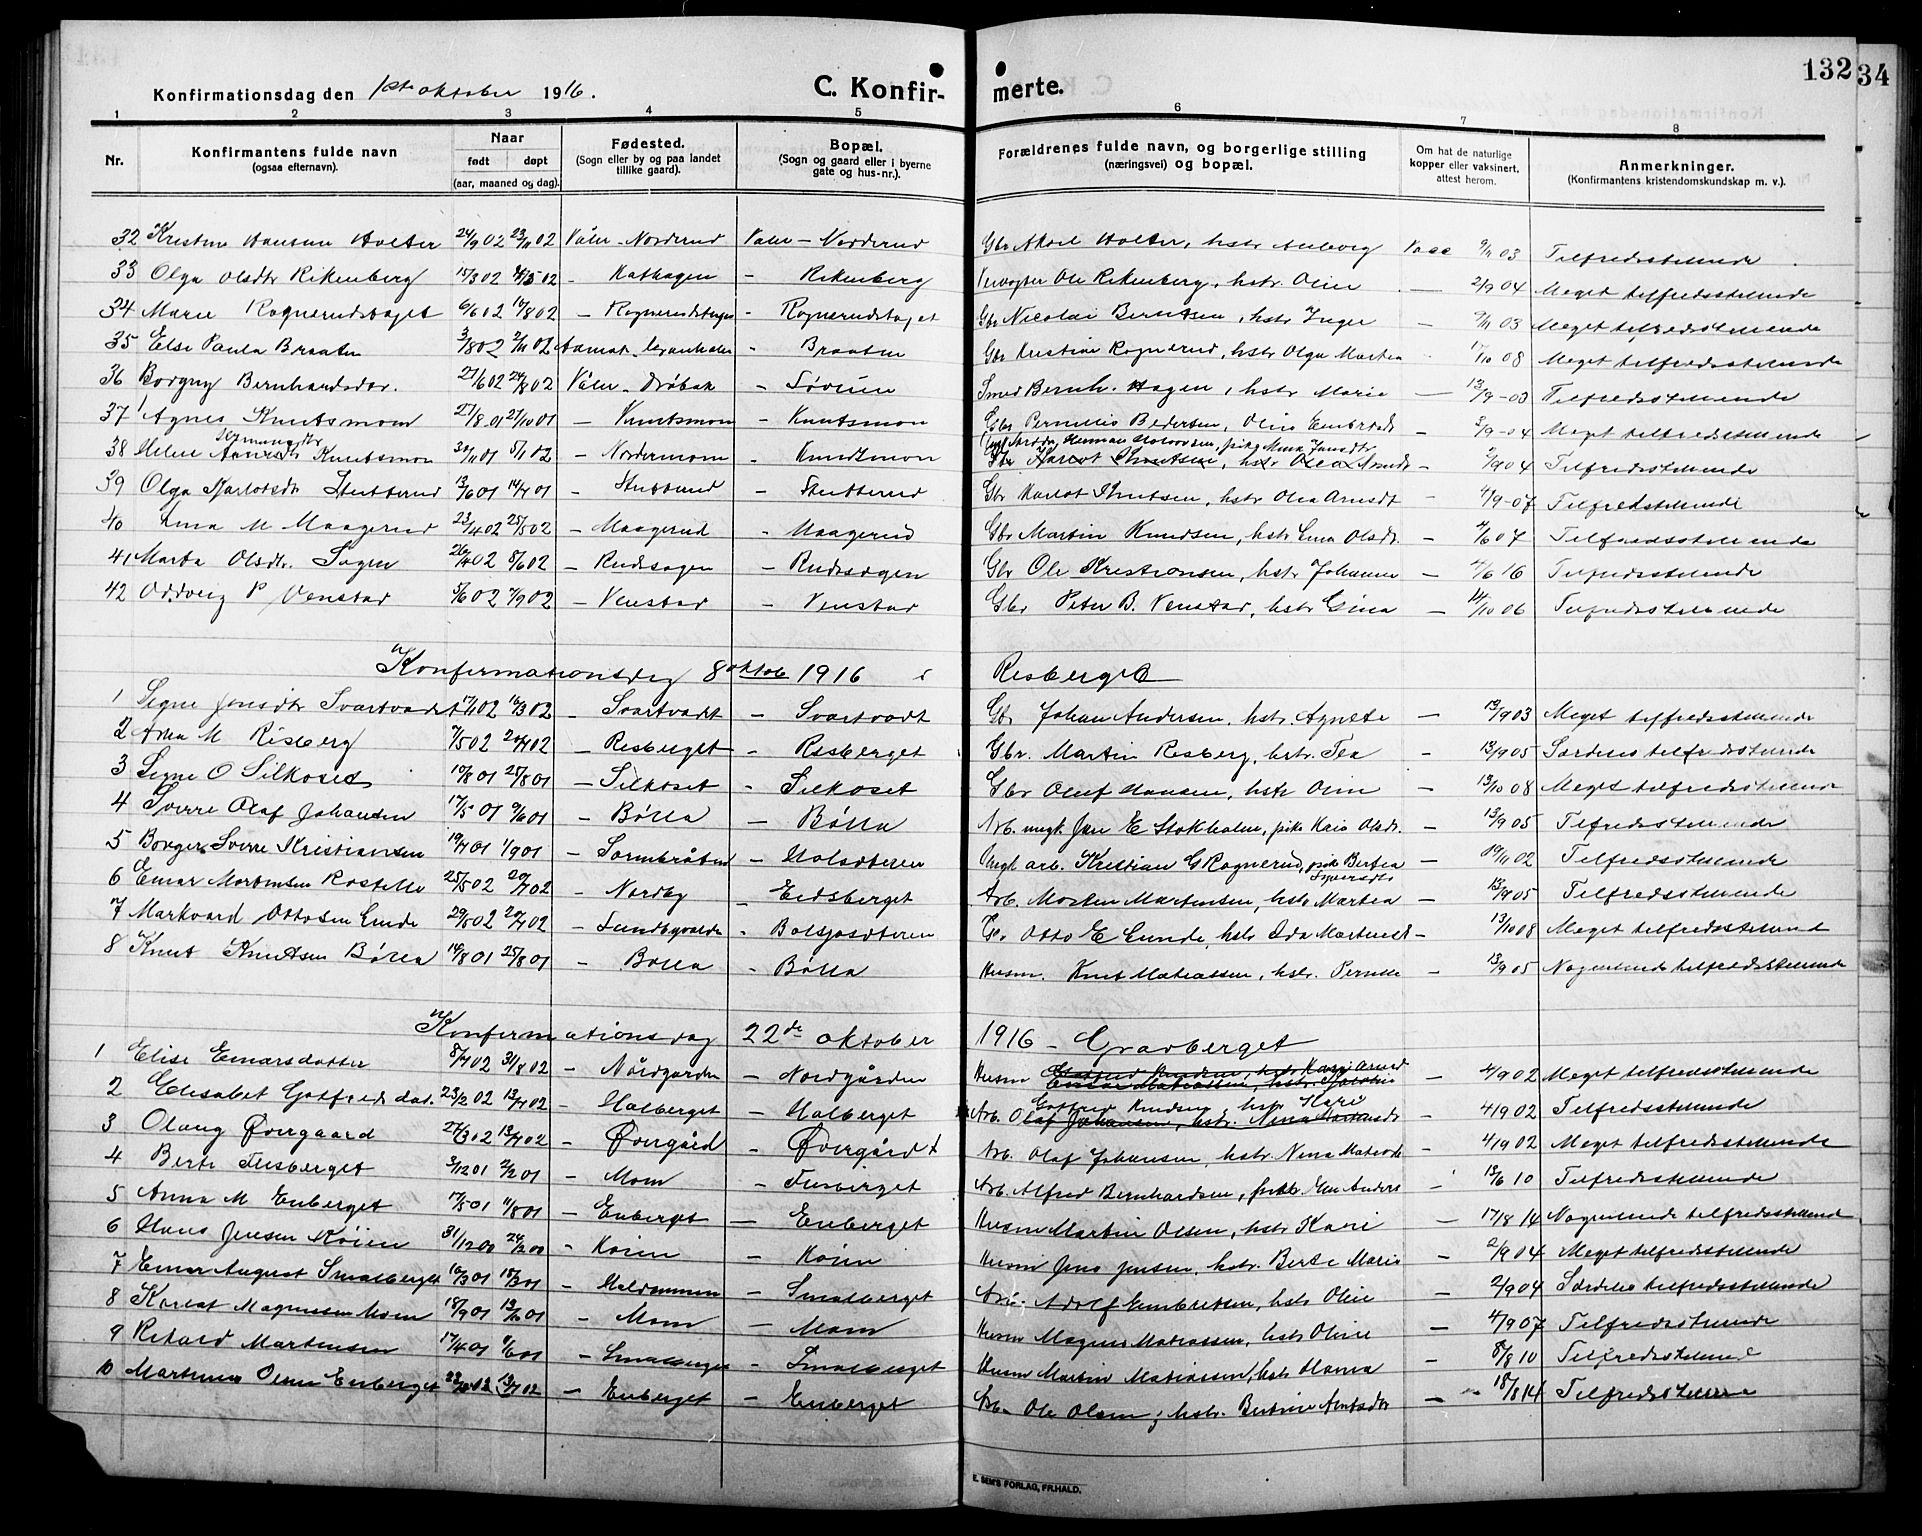 132
34
Konfirmationsdag den 1ste oktober 1916.
C. Konfirmerte.
1 2 3 4 5 6 7 8
Nr.
Konfirmantens fulde navn
(ogsaa efternavn).
Naar
født døpt
(aar, maaned og dag).
Fødested.
(Sogn eller by og paa landet
tillike gaard).
Bopæl.
(Sogn og gaard eller i byerne
gate og hus-nr.).
Forældrenes fulde navn, og borgerlige stilling
(næringsvei) og bopæl.
Om hat de naturlige
kopper eller vaksinert,
attest herom.
Anmerkninger.
(Konfirmantens kristendomskundskap m. v.).
32 Kristine Hansen Holter 24/9 02 23/11 02 Våler - Norderud Våler - Norderud Gbr Aksel Holter, hstr 9/11 03 Tilfredsstillende
33 Olga Olsdtr Rikenberg 15/3 02 02 - - Rikenberg Ole Rikenberg, hstr. Oline - 2/9 04 Meget tilfredsstillende
34 Marie Rognerudstaget 6/6 02 17/8 02 - - Rognerudstaget Gbr Nicolai Berntsen, hstr Inger - 9/11 03 Meget tilfredsstillende
35 Else Paula Braaten 3/8 02 2/11 02 - Braaten Gbr Kristian Rognerud, hstr Olga Martea 17/10 08 Meget tilfredsstillende
36 Borgny Bernhardsdtr. 27/6 02 24/8 02 Våler - Drøbak - Smed Bernh. Hagen, hstr Marie - 13/9-03 Tilfredsstillende
37 Agnes Knutsmom 27/8 01 27/10 01 - Knutsmom - Knutsmom Gbr Pernelius Pedersen, - 3/9-04 Meget tilfredsstillende
38 Helene Knutsmon 30/11 01 5/1 02 - Nordermom - Knudsmon Herman pike Mina Jensdtr - 2/9 04 Tilfredsstillende
39 Olga Karlotsdtr Stubberud 13/6 01 14/7 01 - Stubberud - Stubberud Gbr Karlot Knutsen, hstr Olea Arnesdt - 4/9-07 Tilfredsstillende
40 M Maagerud 23/4 02 25/5 02 - Maagerud - Maagerud Gbr Martin Knudsen, hstr Olsdtr. - 4/6 07 Tilfredsstillende
41 Marta Olsdtr. Sagen 02 8/6 02 - Rudssagen - Rudssagen Gbr Ole Kristiansen, hstr Johanne - 4/6 16 Tilfredsstillende
42 Oddveig P Venstad 5/6 02 7/9 02 - Venstad - Venstad Gbr Peter B. Venstad, hstr Gina - 14/10 06 Tilfredsstillende
Konfirmationsdag 8 oktob 1916 i Risberget
1 Signe Jonsdtr Svartvadt 17/1 02 16/3 02 - Svartvadt - Svartvadt Gbr Johan Andersen, hstr. Agnete - 13/9 03 Meget tilfredsstillende
2 M Risberg 7/5 02 20/7 02 - Risberget - Risberget Gbr. Martin Risberg, hstr. Tea - 13/9 05 Særdeles tilfredsstillende
3 Signe O Silkoset 10/8 01 25/8 01 - Silkoset - Silkoset Gbr Oluf Hansen, hstr Oline - 13/10 08 Meget tilfredsstillende
4 Sverre Olaf Johansen 17/5 01 9/6 01 - Bølla - Bølla Arb. ungk. E Stokholm, pike Olsdr. - 13/9 05 Tilfredsstillende
5 Borger Sverre Kristiansen 19/7 01 1/9 01 - Sormbråten - Holsæteren Ungk arb. Kristian G Rognerud, pike Bertea Syversdtr - 10/11 02 Tilfredsstillende
6 Einar Mortensen 25/5 02 20/7 02 - Nordby - Eidsberget Arb. Morten Martensen, hstr Martea - 13/9 05 Tilfredsstillende
7 Markvard Ottosen Lunde 29/5 02 20/7 02 - - Otto E Lunde, hstr Ida - 13/10 08 Meget tilfredsstillende
8 Knut Knutsen Bølla 10/8 01 25/8 01 - Bølla - Bølla Husm. Knut Matiassen, hstr. Pernille - 13/9 05 Nogenlunde tilfredsstillende
Konfirmationsdag 22de oktober 1916 - Gravberget
1 Elise Einarsdatter 8/7 02 31/8 02 - Nordgården - Nordgården Husm Einar Matiassen, hstr - 4/9 02 Meget tilfredsstillende
2 Elisabet Gotfredsdat. 23/2 02 13/7 02 - Halberget - Halberget Arb. Gotfred Knudsen, hstr Kari - 4/9 02 Tilfredsstillende
3 Olaug Øvergaard 27/3 02 13/7 02 - Øvergård - Øvergård Arb. Olaf Johansen, hstr. Nina - 4/9 02 Meget tilfredsstillende
4 Berte 3/12 01 2/2 01 - Mom - Arb. Alfred Bernhardsen, 13/6 10 Tilfredsstillende
5 Anna M Enberget 17/5 01 11/8 01 - Enberget - Enberget Husm Martin Olsen, hstr Kari - 17/8 14 Nogenlunde tilfredsstillende
6 Hans Jensen Køien 31/12 00 24/2 00 - Koien - Køien Husm Jens Jensen, hstr. Berte Marie - 2/9 04 Meget tilfredsstillende
7 Einar August Smalberget 10/3 01 15/3 01 - Haldammen - Smalberget Arb. Adolf Embretsen, hstr Oline - 2/9 04 Særdeles tilfredsstillende
8 Karlot Magnussen Mom 18/9 01 13/ 01 - Mom - Mom Husm Magnus Matiassen, hstr Oline - 4/9 07 Tilfredsstillende
9 Rikard Martinsen 17/4 01 9/6 01 - Smalberget - Smalberget Husm Martin Matiassen, hstr Hanna - 8/8 10 Tilfredsstillende
10 Martinus Olsen Enberget 02 13/7 02 - Enberget - Enberget Arb. Ole Olsen, hstr. Bertine - 18/8 14 Tilfredsstillende
E. SEM'S FORLAG, FR.HALD.